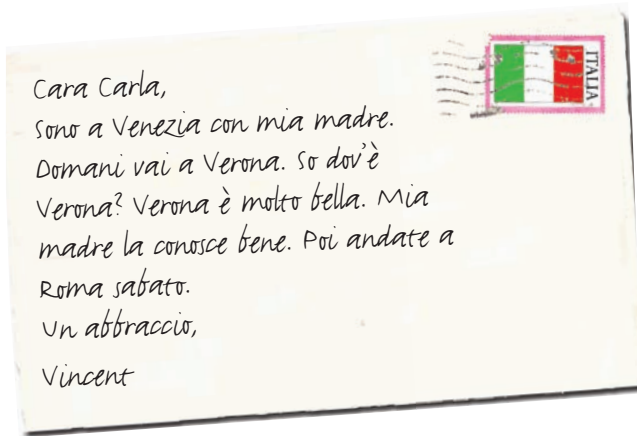 Cara Carla,
Sono a Venezia con mia madre.
Domani vai a Verona. So dov'è
Verona? Verona è molto bella. Mia
madre la conosce bene. Poi andate a
Roma sabato.
Un abbraccio,
Vincent
ITALIA